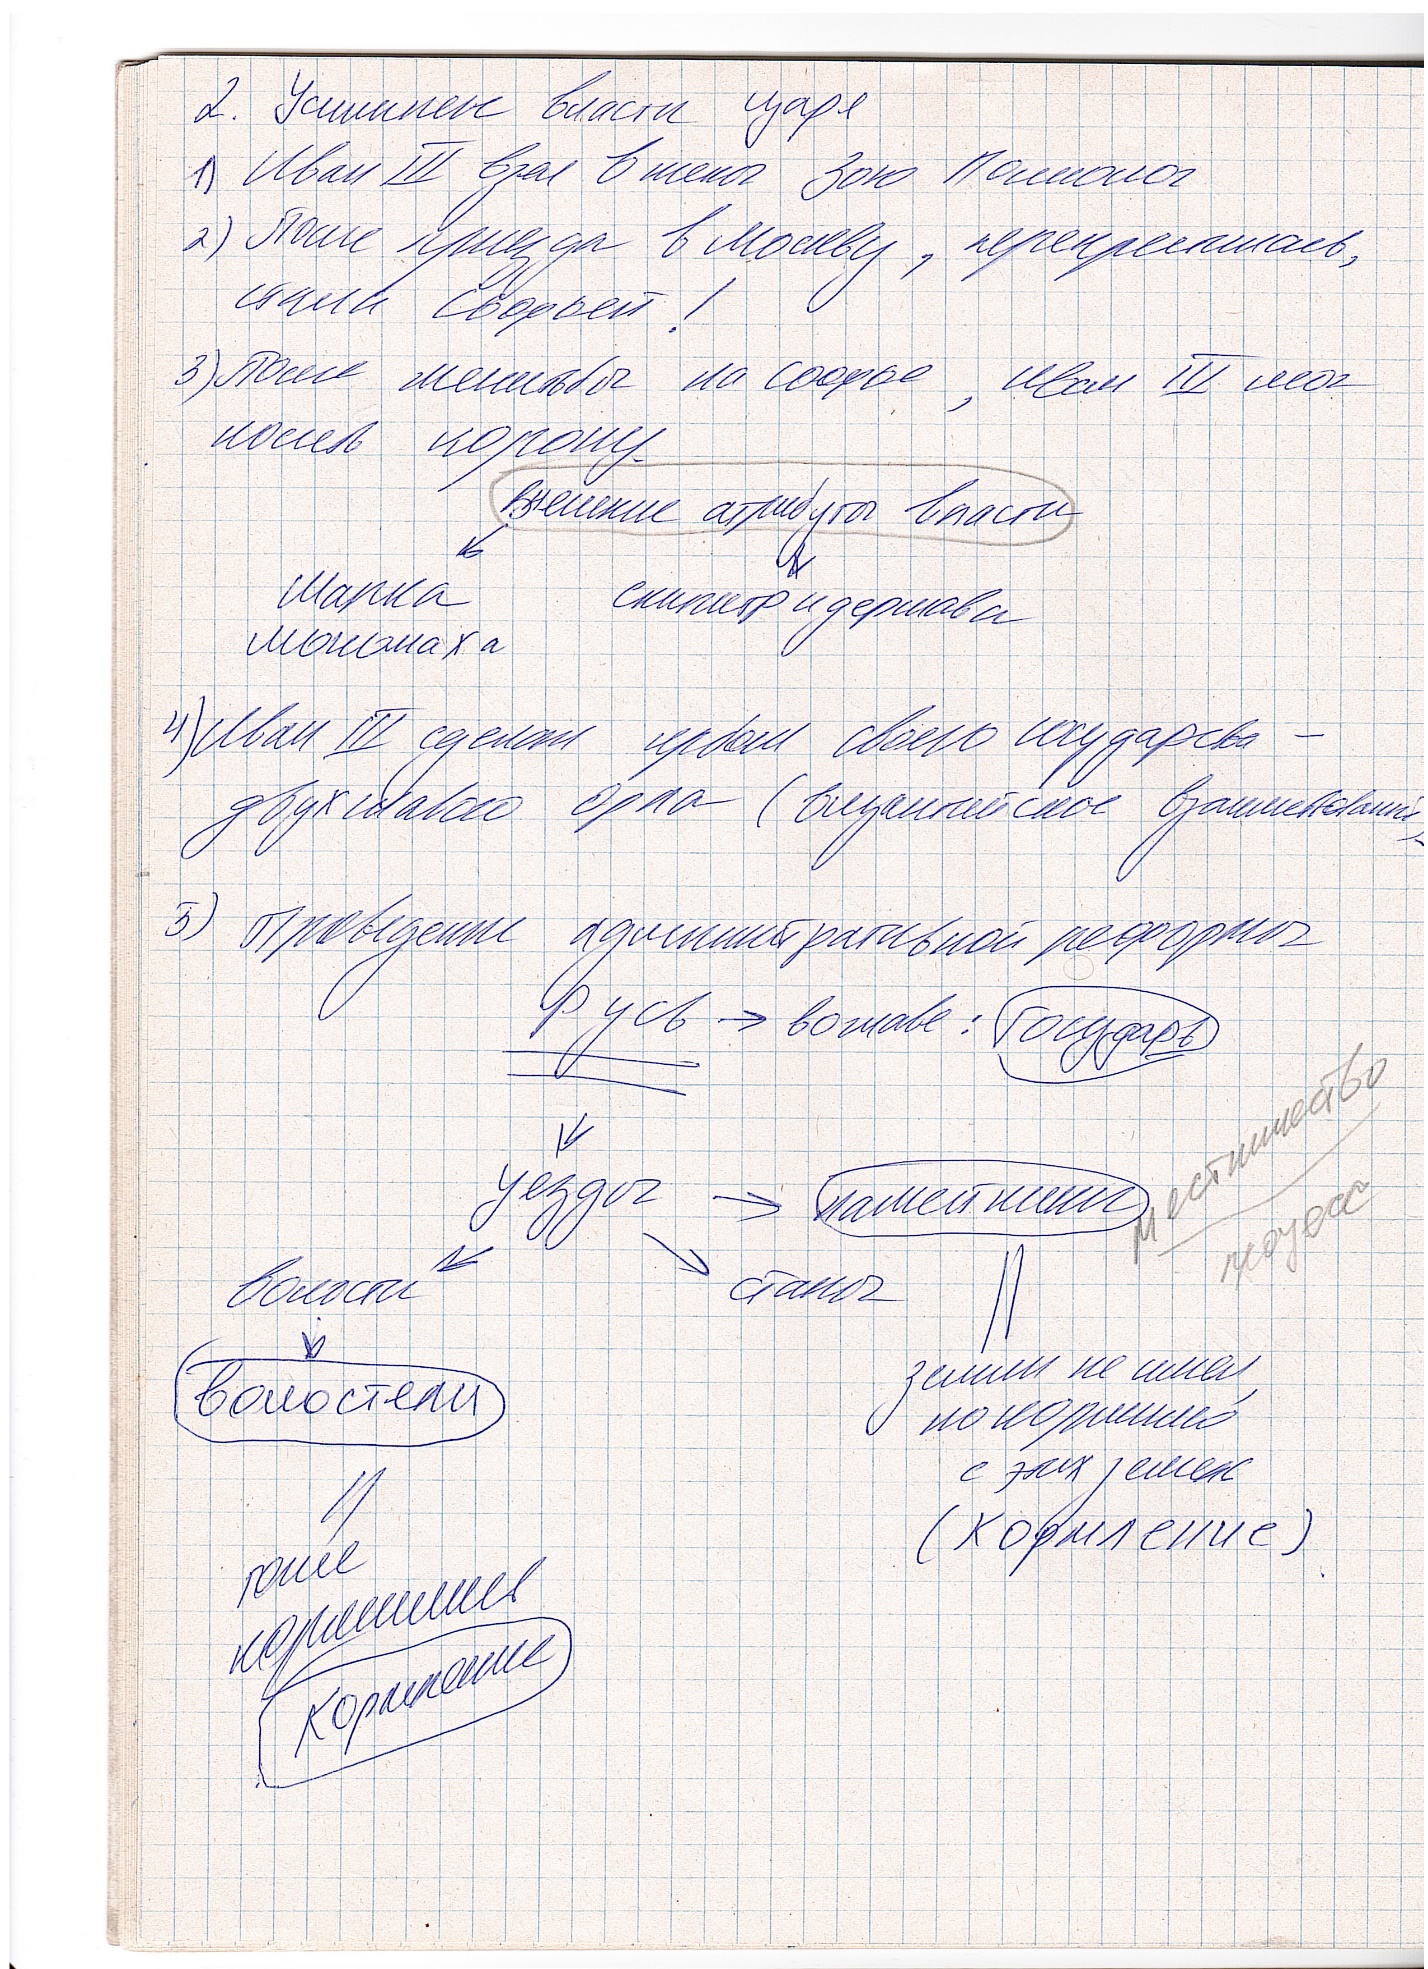 2. Усиление власти царя
1) Иван III взял в жены Зою Палеолог
2) После приезда в Москву, перекрестилась,
стала Софьей!
3) После женитьбы на Софье, Иван III мог
носить корону.
Внешние атрибуты власти
Шапка скипетр и держава
Мономаха
4) Иван III сделал гербом своего государства –
двухглавого орла (византийское
5) Проведение административной реформы
Русь → во главе: Государь
уезды → наместники
местничество
процесс
волости станы
волостели
земли не имел,
но кормился
с этих земель
(кормление)
тоже
кормились
Кормление